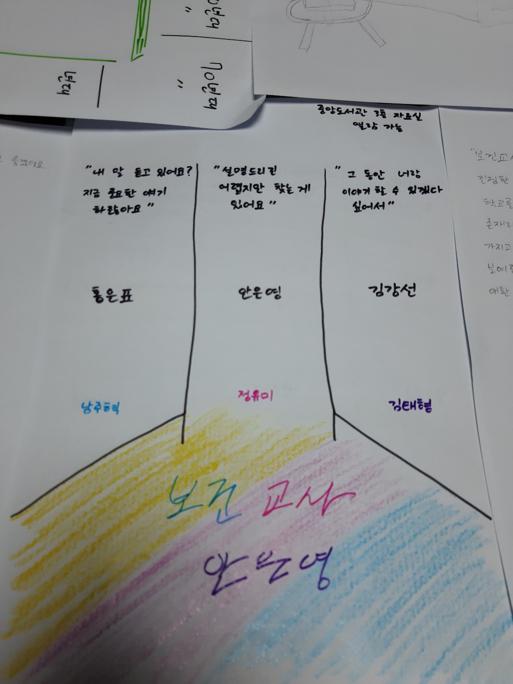 70년대
〃
년대
중앙도서관 3층 자료실
열람 가능
"내 말 듣고 있어요?
지금 중요한 얘기
하잖아요"
"설명드리긴
어렵지만 찾는 게
있어요"
"그 동안 너랑
이야기 할 수 있겠다
싶어서"
홍은표
안은영
김강선
남주혁
정유미
김태훈
보건 교사
안은영